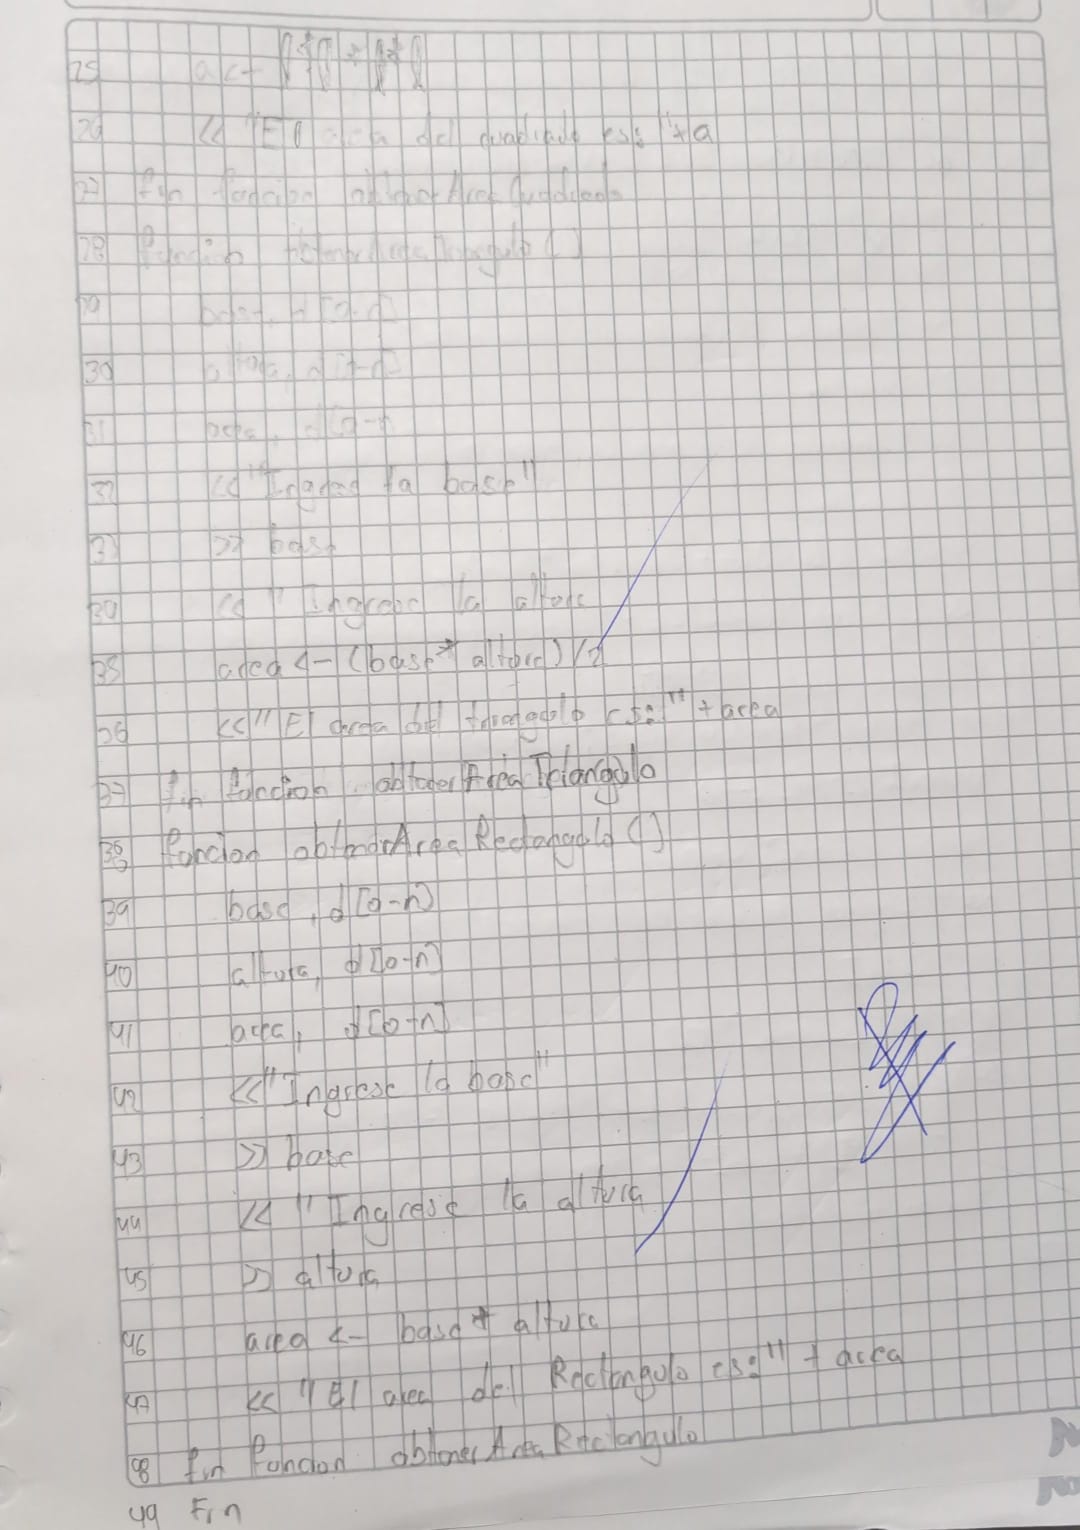 25 a <-
26 << "El area del quadrado es: "+a
27 fin funcion obtenerAreaQuadrado
28 funcion obtenerAreaTriangulo ( )
29 base, d [0-n]
30 altura, d [0-n]
31 area, d [0-n
32 << "Ingrese la base"
33 >> base
34 << " Ingrese la altura
35 area <- (base * altura) /2
36 << "El area del triangulo es: " + area
37 fin funcion obtener Area Triangulo
38 funcion obtenerArea Rectangulo ( )
39 base, d [0-n]
40 altura, d [0-n]
41 area, d [0-n]
42 << "Ingrese la base"
43 >> base
44 << " Ingrese la altura
45 >> altura
46 area <- base * altura
47 << "El area del Rectangulo es: " + area
48 fin funcion obtener Area Rectangulo
49 Fin